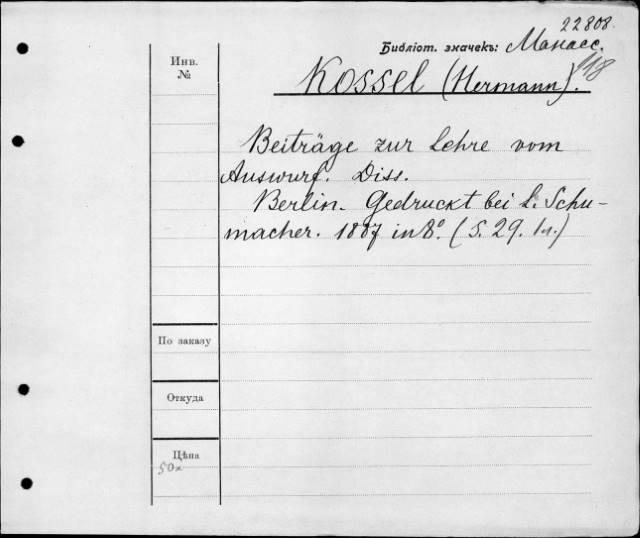 22808.
Библіот. значекъ: Манасс.
118
Инв.
№
Kossel (Hermann).
Beiträge zur Lehre vom
Auswurf. Diss.
Berlin. Gedruckt bei L. Schu-
macher. 1887 in 8°. (S. 29. 1n.)
По заказу
Откуда
Цѣна
50к